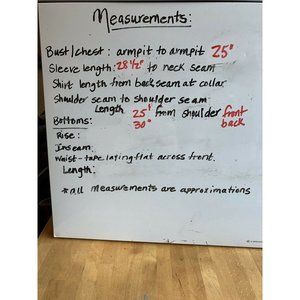 Measurements:
Bust/chest: armpit to armpit 25"
Sleeve length: 28 1/2" to neck seam
Shirt length from back seam at collar
Shoulder seam to shoulder seam
Length 25" from shoulder front
Bottoms: 30" back
Rise:
Inseam:
Waist - tape laying flat across front.
Length:
*all measurements are approximations